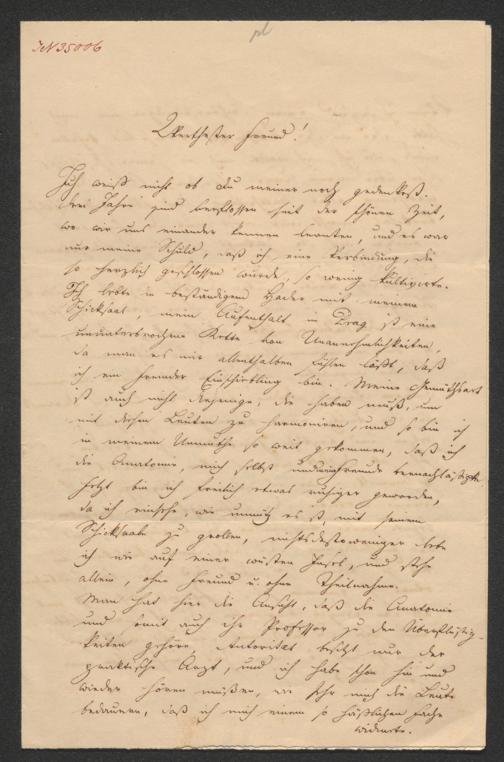 IN 35006
Werthester Freund!
Ich weiß nicht ob du meiner noch gedenkest.
Drei Jahre sind verflossen seit der schönen Zeit,
wo wir uns einander kennen lernten, und es war
nur meine Schuld, daß ich eine Verbindung, die
so herzlich geschlossen wurde, so wenig kultivirte.
Ich lebte in beständigem Hader mit meinem
Schicksal, mein Aufenthalt in Prag ist eine
ununterbrochene Kette von Unannehmlichkeiten,
da man es mir allenthalben fühlen läßt, daß
ich ein fremder Eindringling bin. Meine Gemüthsart
ist auch nicht diejenige, die haben muß, um
mit diesen Leuten zu harmoniren, und so bin ich
in meinem Unmuthe so weit gekommen, daß ich
die Anatomie, mich selbst und meine Freunde vernachläßigte.
Jetzt bin ich freilich etwas ruhiger geworden,
da ich einsehe, wie unnütz es ist, mit seinem
Schicksale zu grollen, nichtsdestoweniger lebe
ich wie auf einer wüsten Insel, und stehe
allein, ohne Freund u. ohne Theilnahme.
Man hat hier die Ansicht, daß die Anatomie
und somit auch ihr Professor zu den Überflüßig-
keiten gehöre, Autorität besitzt nur der
praktische Arzt, und ich habe schon hin und
wieder hören müßen, wie sehr mich die Leute
bedauern, daß ich mich einem so häßlichen Fache
widmete.